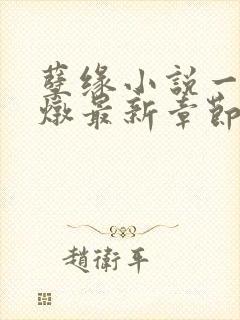 孽缘小說一
燉最新章節
趙衛平